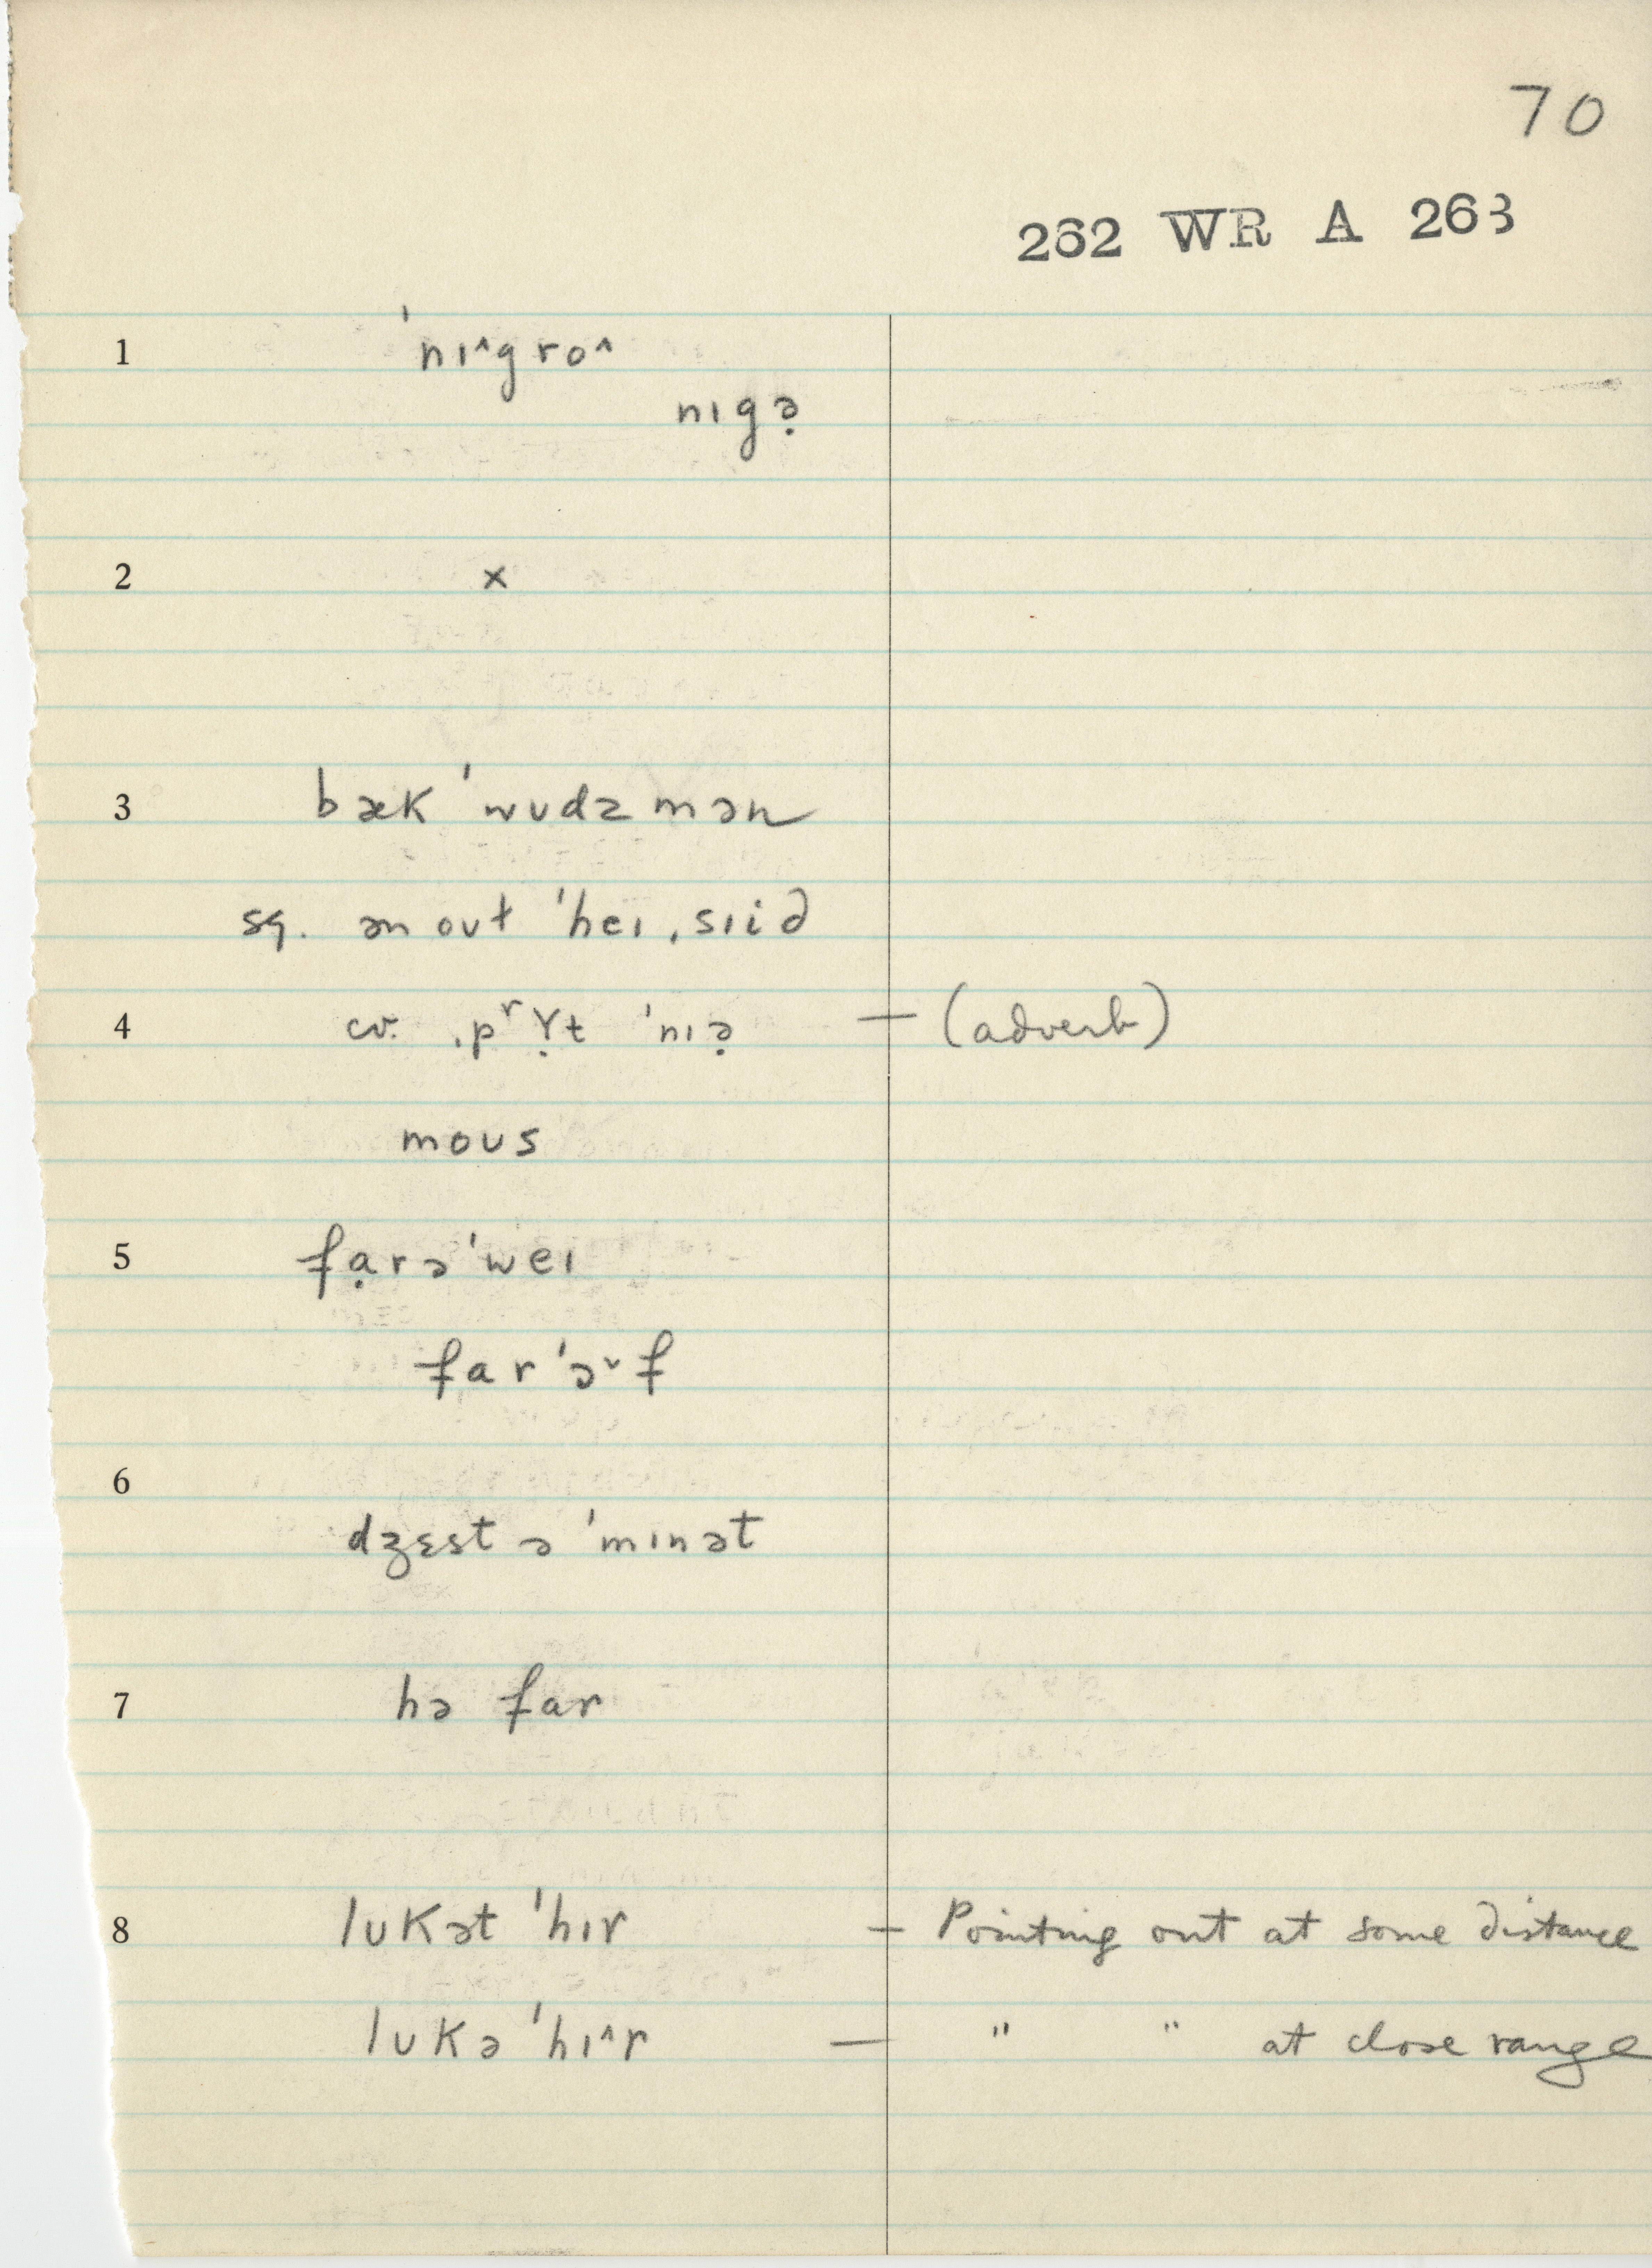 70
262 WR A 263
1 'nɪ^gro^
nɪgə̣
2 x
3 bæk 'wʊdzmən
sq. ən out 'heɪ ˌsɪid
4 cv. ˌpʳɤ̣t 'nɪə̣ — (adverb)
moʊs
5 fạrə'weɪ
far'ə˅f
6
dʒɛst ə 'mɪnət
7 hə far
8 lʊkət 'hɪr — Pointing out at some distance
lʊkə 'hɪ^r — " " at close range